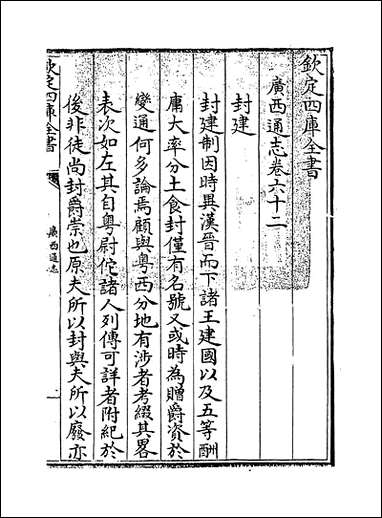 欽定四庫全書
廣西通志卷六十二
封建
封建制因時異漢晉而下諸王建國以及五等酬
庸大率分土食封僅有名號又或時為贈爵資於
變通何多論焉顧與粵西分地有涉者考綴其畧
表次如左其自粵尉佗諸人列傳可詳者附紀於
後非徒尚封爵崇也原夫所以封與夫所以廢亦
欽定四庫全書
廣西通志
一